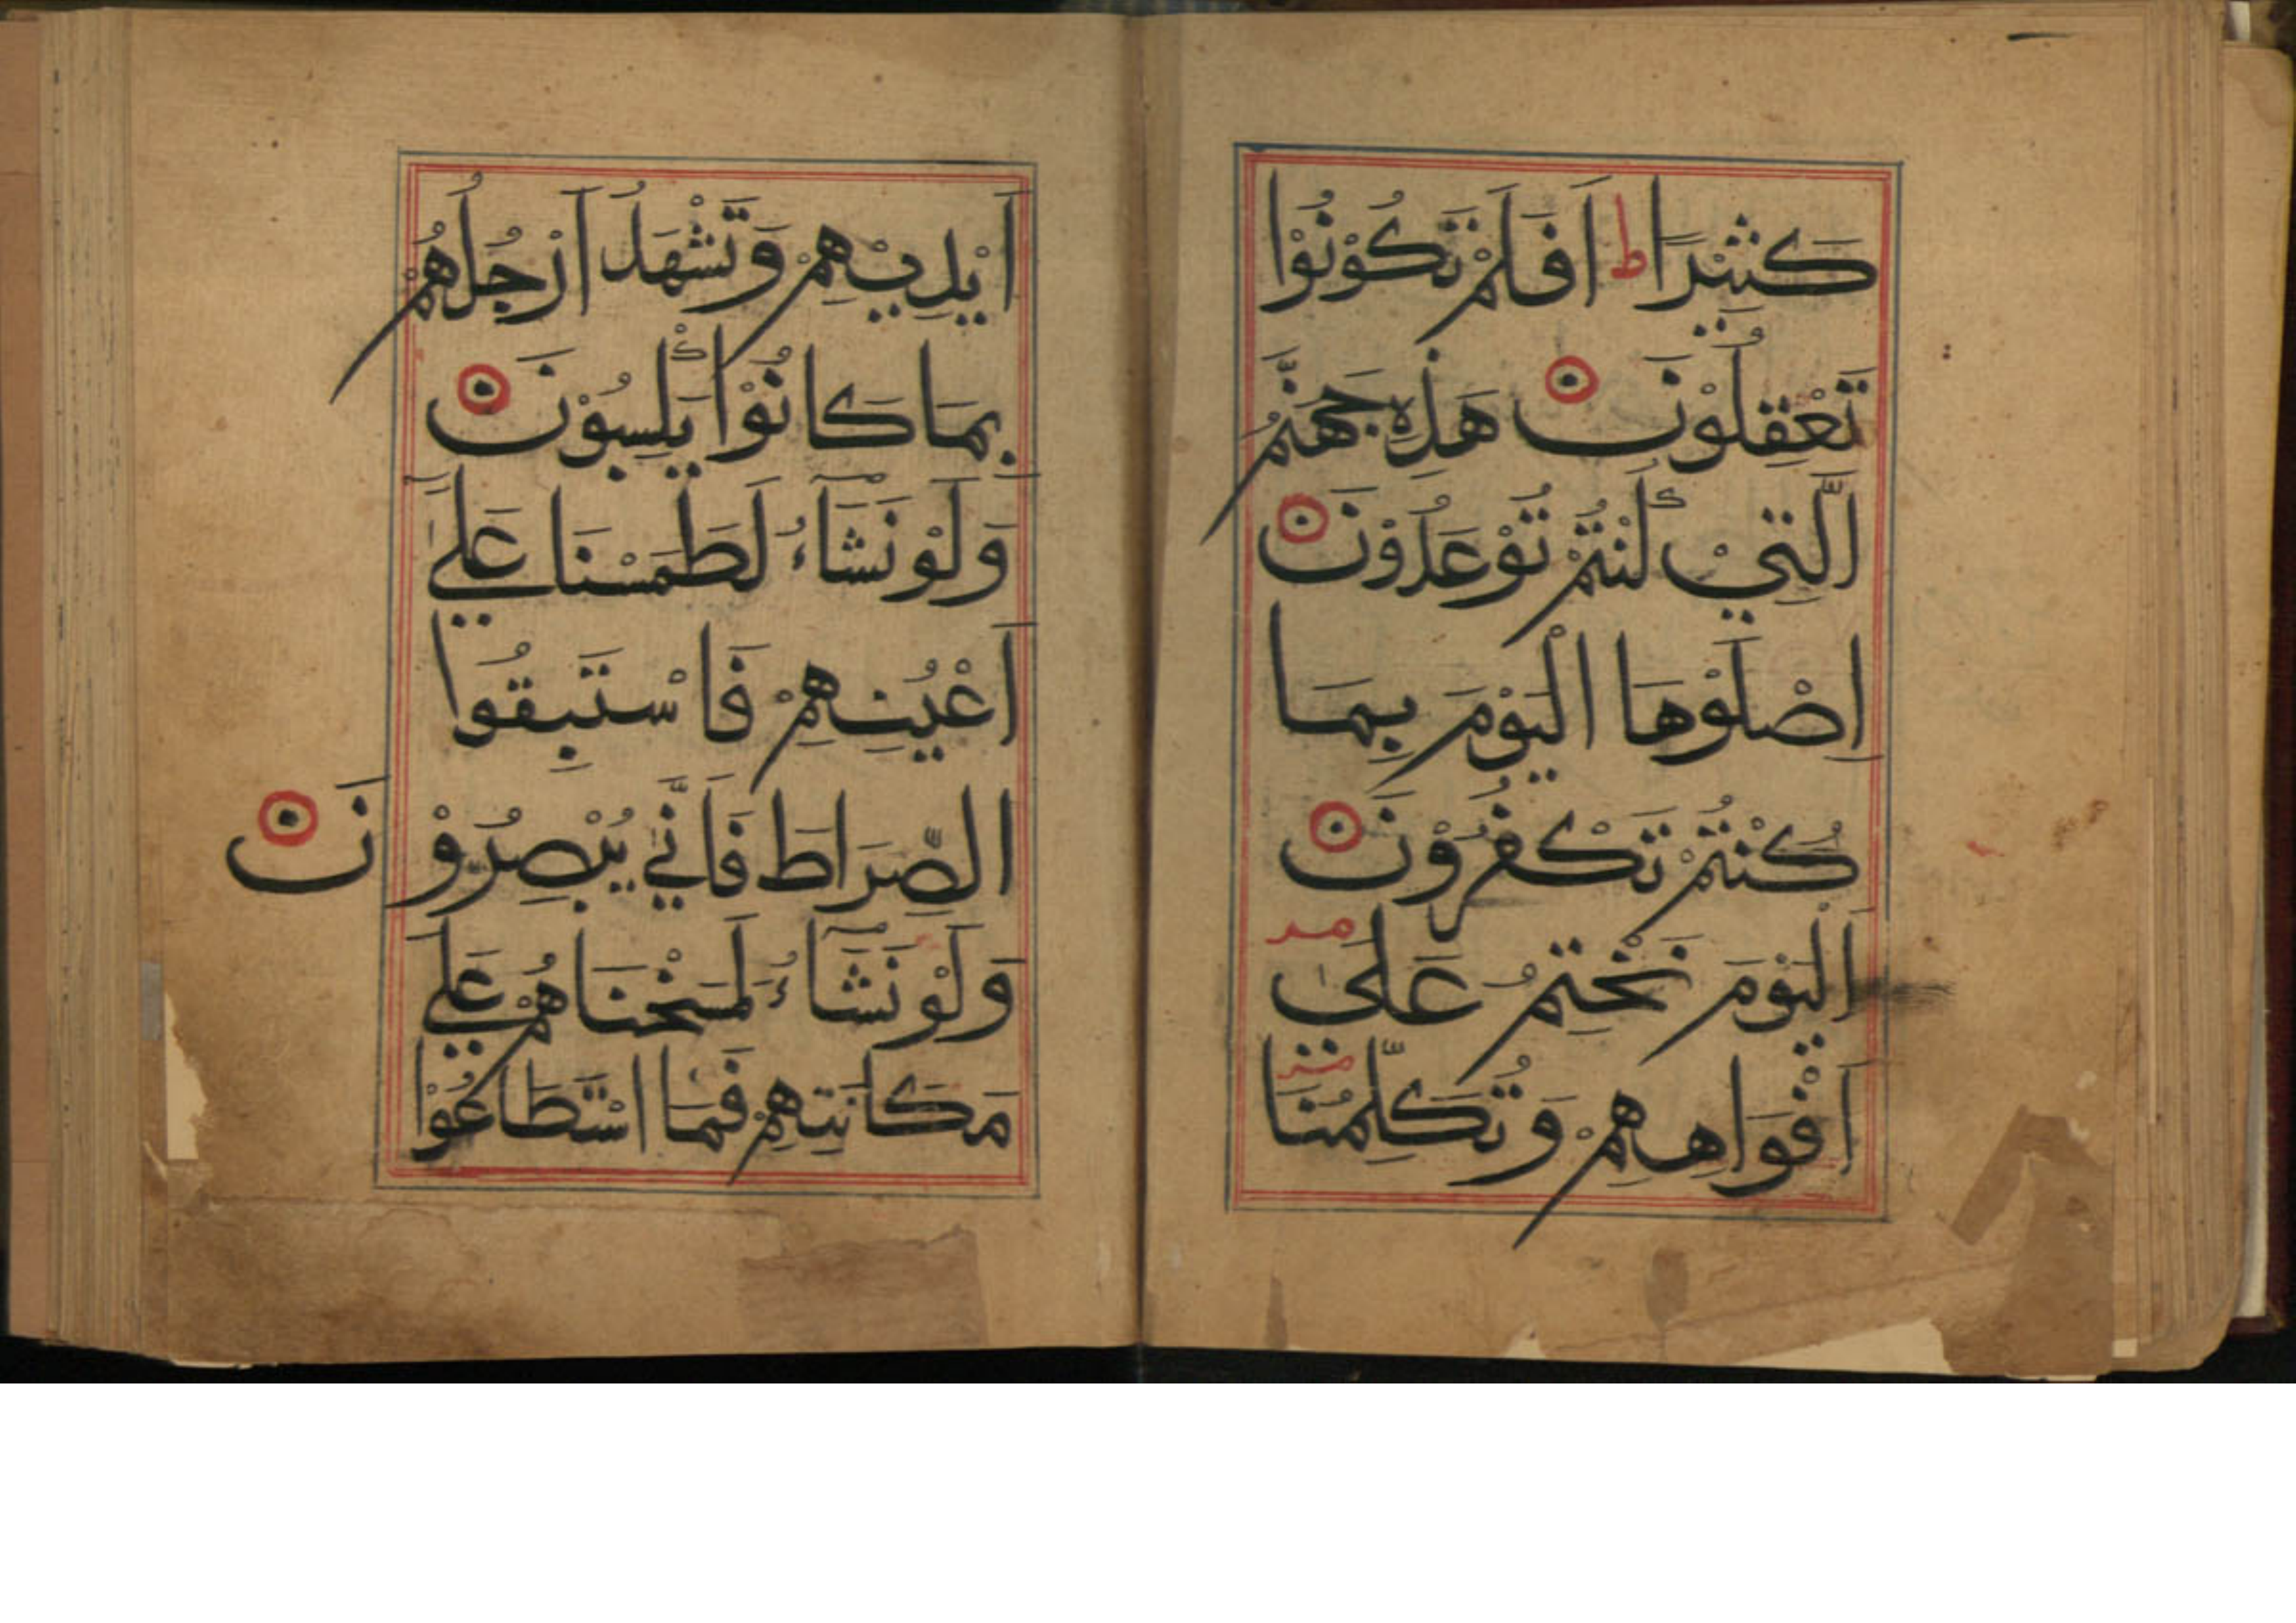 كَثِيْرًا ط اَفَلَمْ تَكُوْنُوْا
تَعْقِلُوْنَ هَذِهِ جَهَنَّمُ
الَّتِيْ كُنْتُمْ تُوْعَدُوْنَ
اِصْلَوْهَا الْيَوْمَ بِمَا
كُنْتُمْ تَكْفُرُوْنَ
اَلْيَوْمَ نَخْتِمُ عَلٰى
اَفْوَاهِهِمْ وَتُكَلِّمُنَا
اَيْدِيْهِمْ وَتَشْهَدُ اَرْجُلُهُمْ
بِمَا كَانُوْا يَكْسِبُوْنَ
وَلَوْ نَشَآءُ لَطَمَسْنَا عَلٰى
اَعْيُنِهِمْ فَاسْتَبِقُوا
الصِّرَاطَ فَاَنّٰي يُبْصِرُوْنَ
وَلَوْ نَشَآءُ لَمَسَخْنَاهُمْ عَلٰي
مَكَانَتِهِمْ فَمَا اسْتَطَاعُوْا